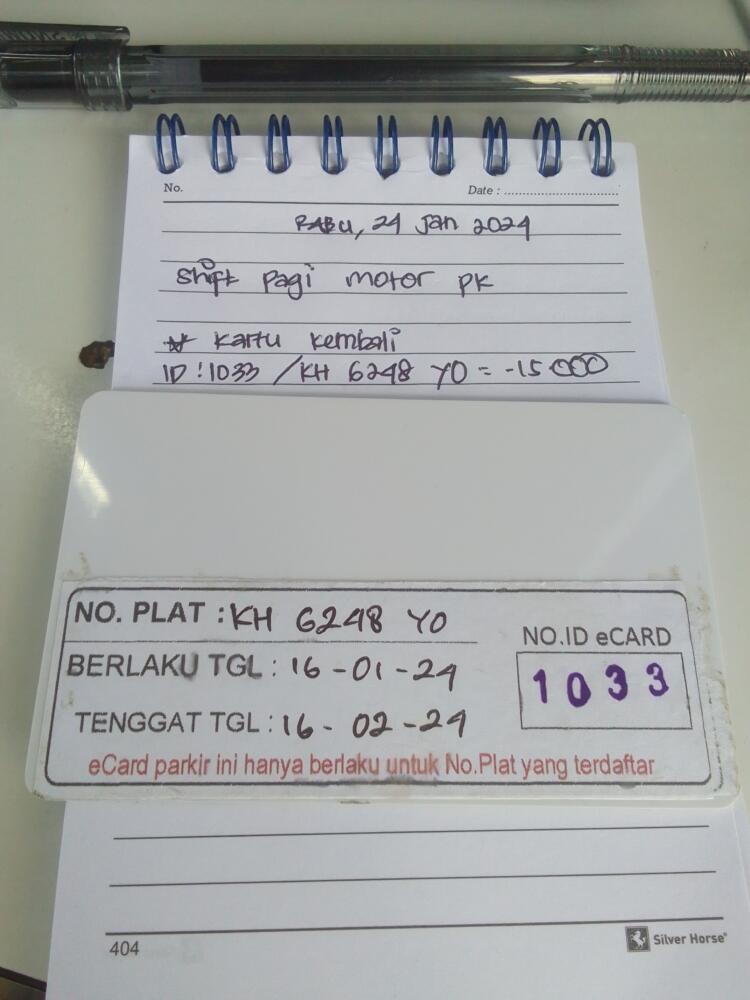 No.
Date : ................................
RABU, 24 Jan 2024
Shift pagi motor PK
* kartu kembali
ID : 1033 / KH 6248 YO = -15 000
NO. PLAT : KH 6248 YO
NO.ID eCARD
BERLAKU TGL : 16 - 01 - 24
1033
TENGGAT TGL : 16 - 02 - 24
eCard parkir ini hanya berlaku untuk No.Plat yang terdaftar
404
Silver Horse